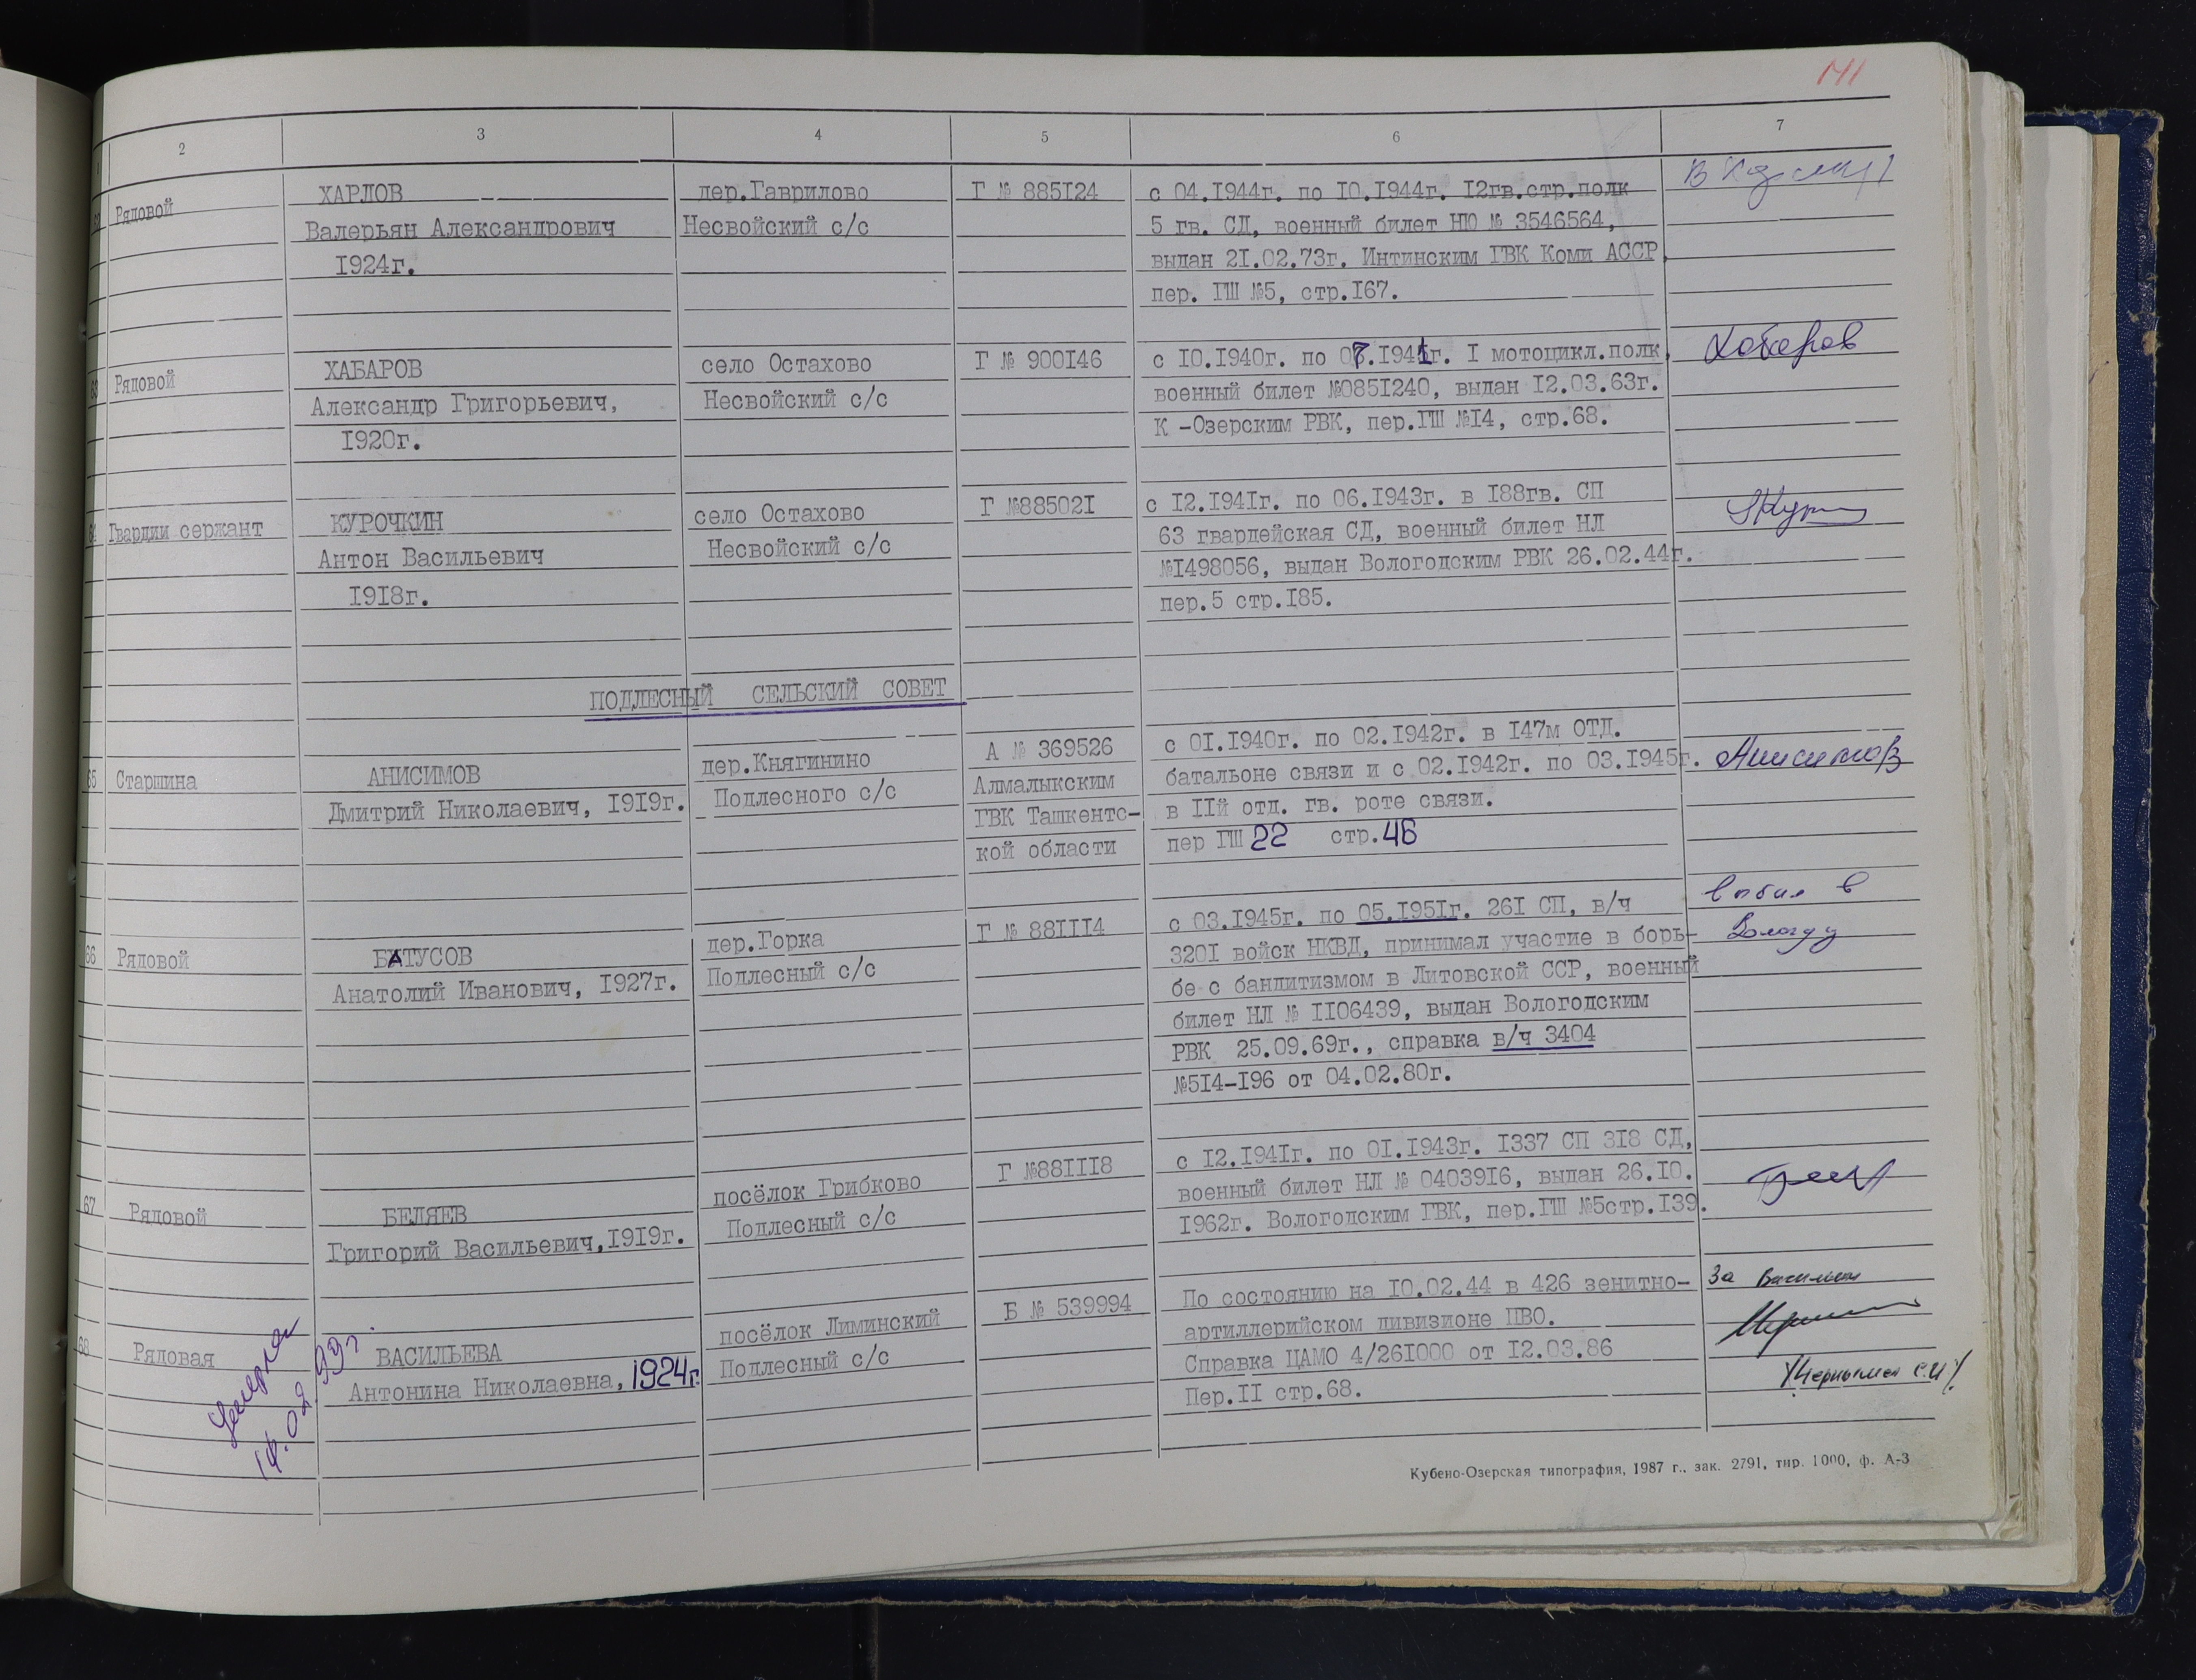 141
2 3 4 5 6 7
Рядовой
ХАРЛОВ
Валерьян Александрович
1924г.
дер.Гаврилово
Несвойский с/с
Г № 885124
с 04.1944г. по 10.1944г. 12гв.стр.полк
5 гв. СД, военный билет НЮ № 3546564,
выдан 21.02.73г. Интинским ГВК Коми АССР,
пер. ГШ №5, стр.167.
63 Рядовой
ХАБАРОВ
Александр Григорьевич,
1920г.
село Остахово
Несвойский с/с
Г № 900146
с 10.1940г. по 07.1941г. I мотоцикл.полк,
военный билет №0851240, выдан 12.03.63г.
К -Озерским РВК, пер.ГШ №14, стр.68.
Хабаров
64 Гвардии сержант
КУРОЧКИН
Антон Васильевич
1918г.
село Остахово
Несвойский с/с
Г №885021
с 12.1941г. по 06.1943г. в 188гв. СП
63 гвардейская СД, военный билет НЛ
№1498056, выдан Вологодским РВК 26.02.44г.
пер.5 стр.185.
ПОДЛЕСНЫЙ СЕЛЬСКИЙ СОВЕТ
65 Старшина
АНИСИМОВ
Дмитрий Николаевич, 1919г.
дер.Княгинино
Подлесного с/с
А № 369526
Алмалыкским
ГВК Ташкентс-
кой области
с 01.1940г. по 02.1942г. в 147м ОТД.
батальоне связи и с 02.1942г. по 03.1945г.
в 11й отд. гв. роте связи.
пер ГШ 22 стр.46
Анисимов
66 Рядовой
БАТУСОВ
Анатолий Иванович, 1927г.
дер.Горка
Подлесный с/с
Г № 881114
с 03.1945г. по 05.1951г. 261 СП, в/ч
3201 войск НКВД, принимал участие в борь-
бе с бандитизмом в Литовской ССР, военный
билет НЛ № 1106439, выдан Вологодским
РВК 25.09.69г., справка в/ч 3404
№514-196 от 04.02.80г.
выбыл в
Вологду
67 Рядовой
БЕЛЯЕВ
Григорий Васильевич,1919г.
посёлок Грибково
Подлесный с/с
Г №881118
с 12.1941г. по 01.1943г. 1337 СП 318 СД,
военный билет НЛ № 0403916, выдан 26.10.
1962г. Вологодским ГВК, пер.ГШ №5стр.139.
68 Рядовая
ВАСИЛЬЕВА
Антонина Николаевна, 1924г.
посёлок Лиминский
Подлесный с/с
Б № 539994
По состоянию на 10.02.44 в 426 зенитно-
артиллерийском дивизионе ПВО.
Справка ЦАМО 4/261000 от 12.03.86
Пер.11 стр.68.
За
Умерла
14.02.99г.
Кубено-Озерская типография, 1987 г., зак. 2791, тир. 1000, ф. А-3